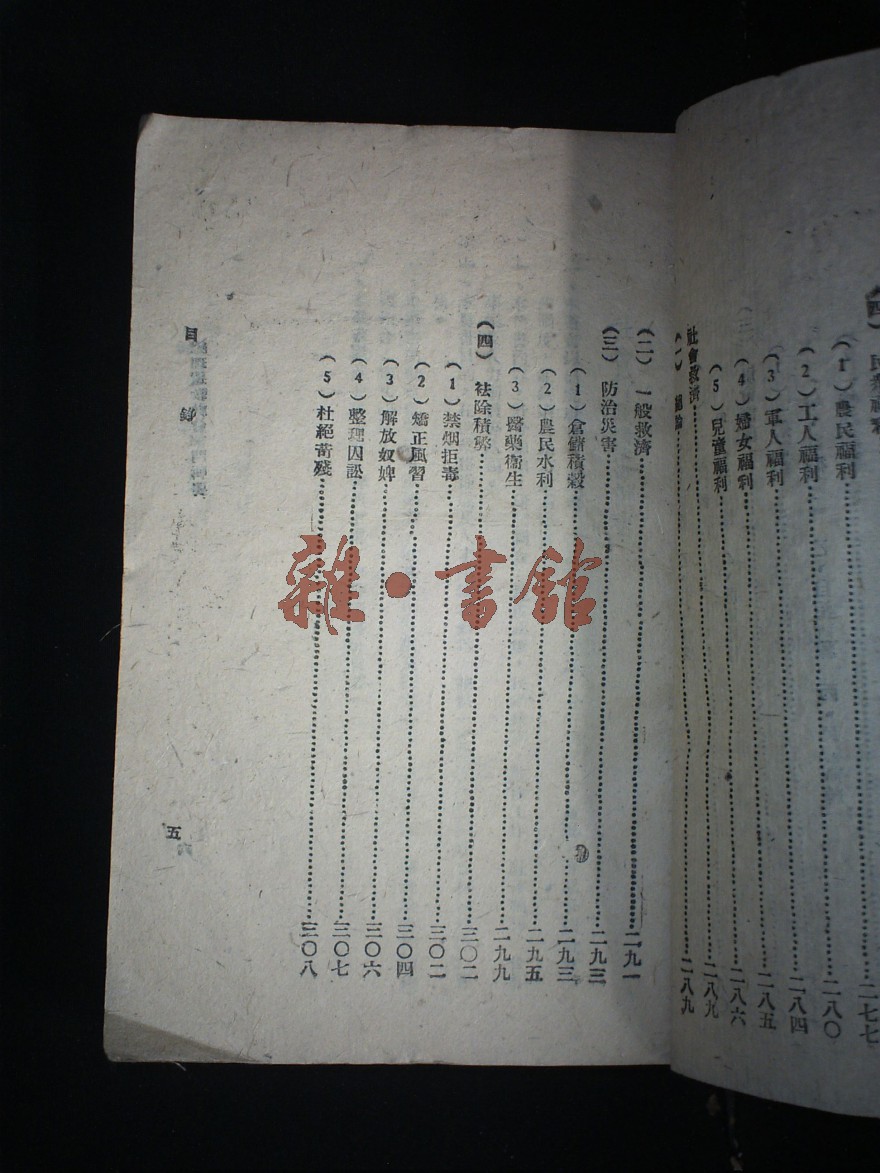 （四）民衆福利……二七七
（1）農民福利……二八〇
（2）工人福利……二八四
（3）軍人福利……二八五
（4）婦女福利……二八六
（5）兒童福利……二八九
社會救濟
（一）……二八九
（二）一般救濟……二九一
（三）防治災害……二九三
（1）倉儲積穀……二九三
（2）農民水利……二九五
（3）醫藥衞生……二九九
（四）袪除積弊……三〇二
（1）禁烟拒毒……三〇二
（2）矯正風習……三〇四
（3）解放奴婢……三〇六
（4）整理囚訟……三〇七
（5）杜絕苛殘……三〇八
目錄
五
雜·書館